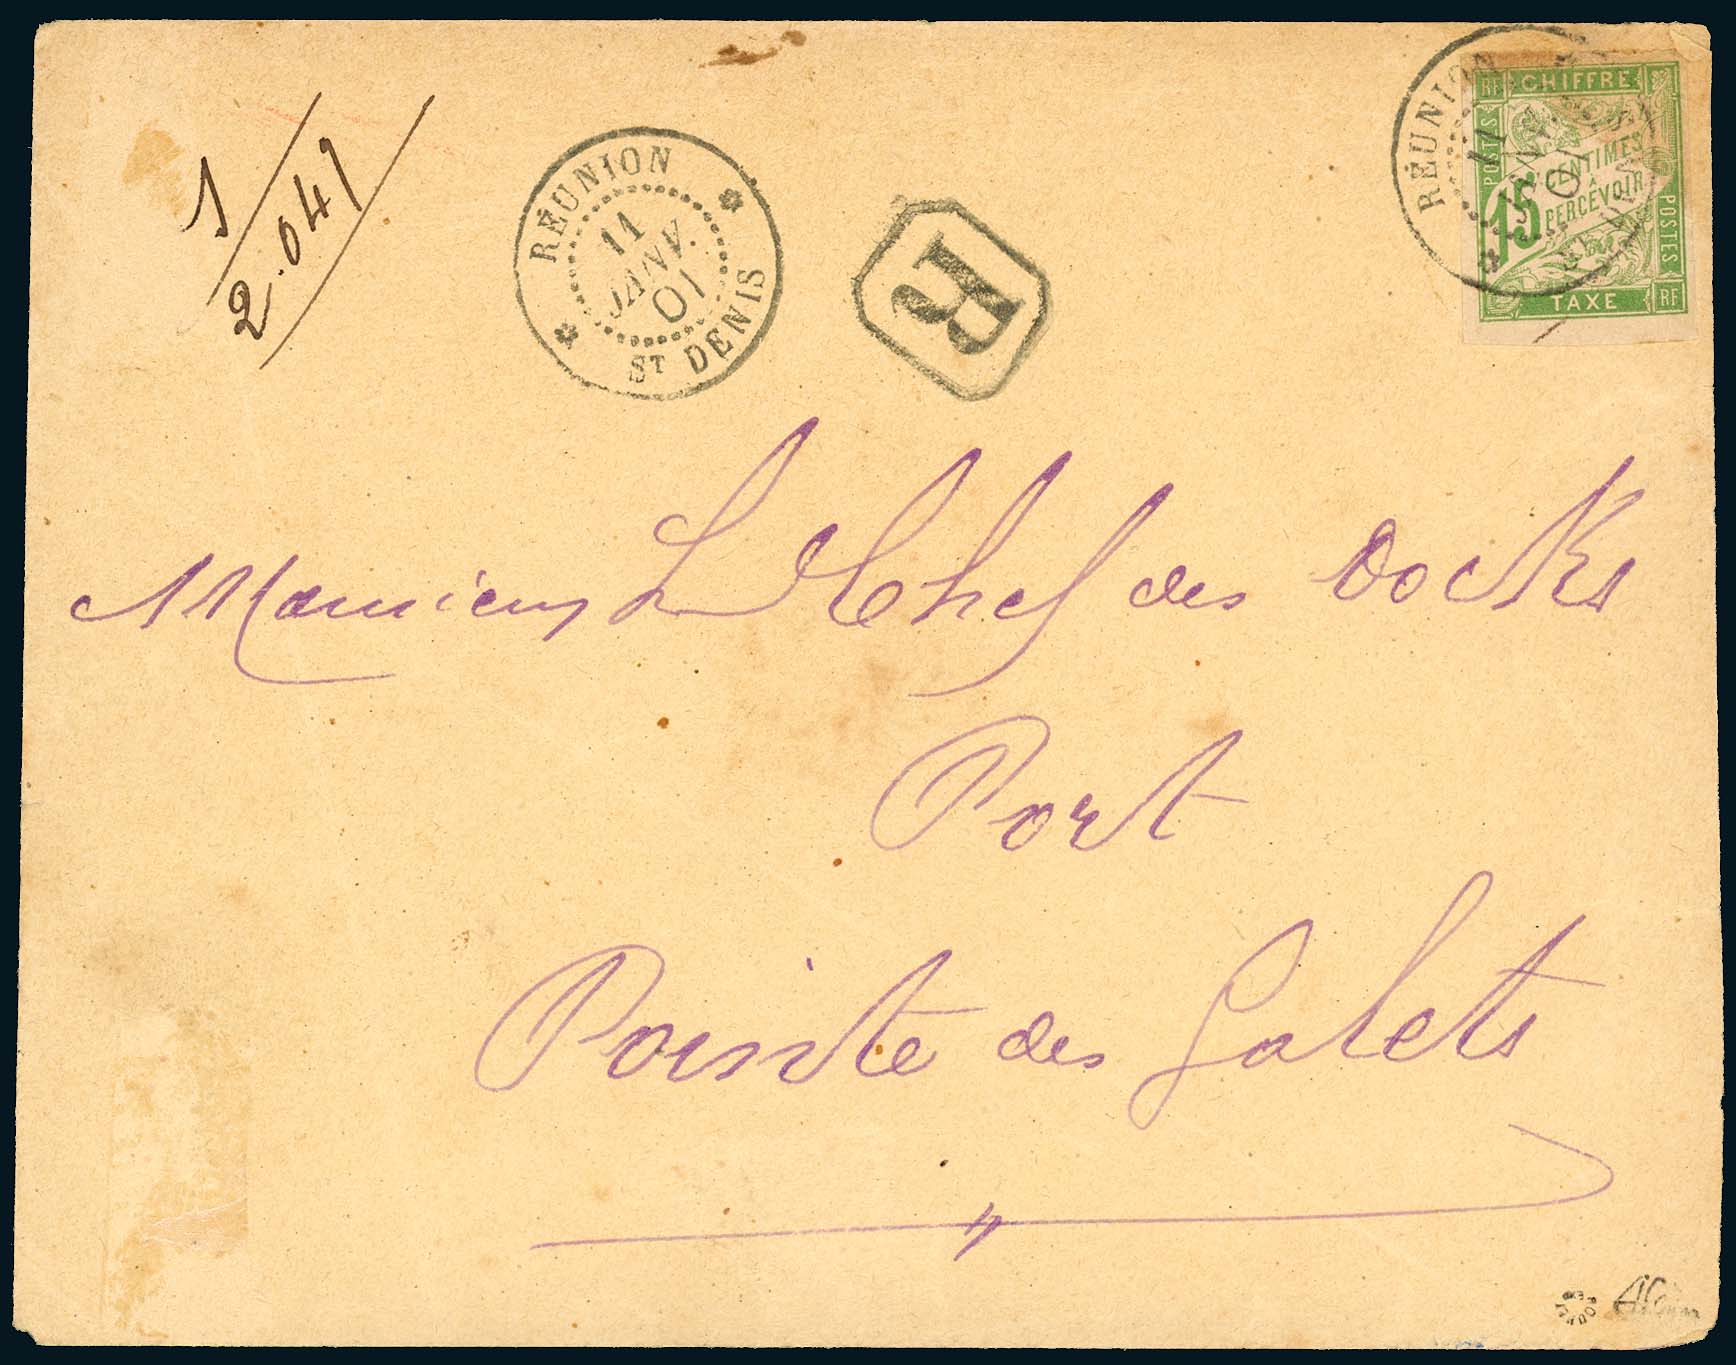 1
2.041
RÉUNION
11
JANV.
01
ST DENIS
R
RÉUNION
11
JANV.
01
RF CHIFFRE
POSTES
15 CENTIMES
À
PERCEVOIR
POSTES
TAXE RF
Monsieur Le Chef des Docks
Port
Pointe des Galets